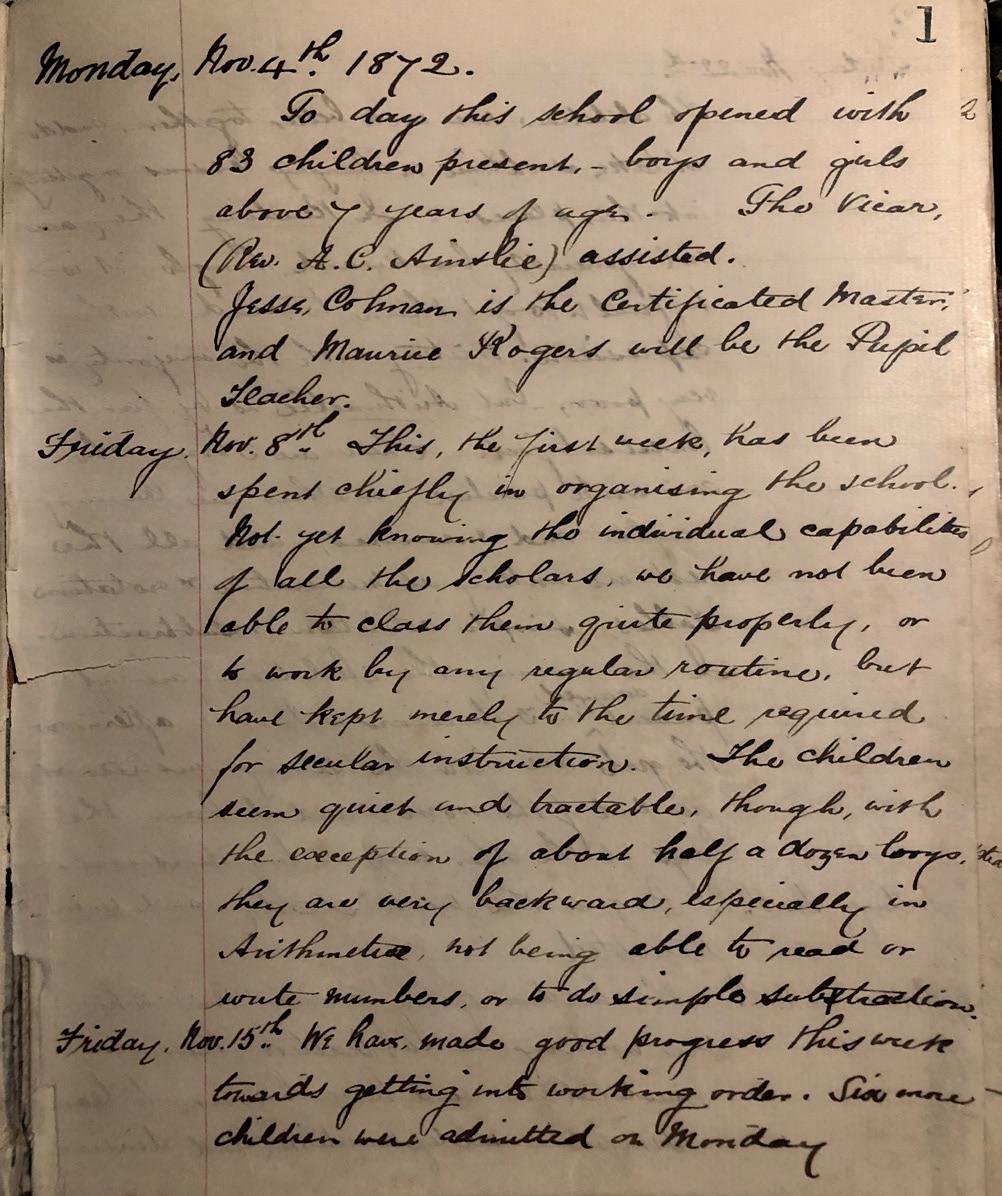 1
Monday, Nov. 4th. 1872.
To day this school opened with
83 children present, - boys and girls
above 7 years of age. The Vicar,
(Rev. A. C. Ainslie) assisted.
Jesse Colman is the Certificated Master,
and Maurice Rogers will be the Pupil
Teacher.
Friday. Nov. 8th This, the first week, has been
spent chiefly in organising the school.
Not yet knowing the individual capabilities
of all the scholars, we have not been
able to class them quite properly, or
to work by any regular routine, but
have kept merely to the time required
for secular instruction. The children
seem quiet and tractable, though, with
the exception of about half a dozen boys,
they are very backward, especially in
Arithmetic, not being able to read or
write numbers, or to do simple substraction.
Friday. Nov. 15th We have made good progress this week
towards getting into working order. Six more
children were admitted on Monday